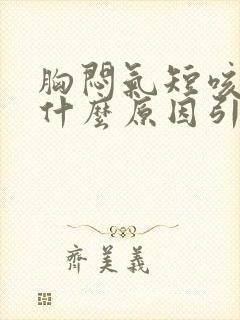 胸悶氣短咳
什麼原因引
齊美義